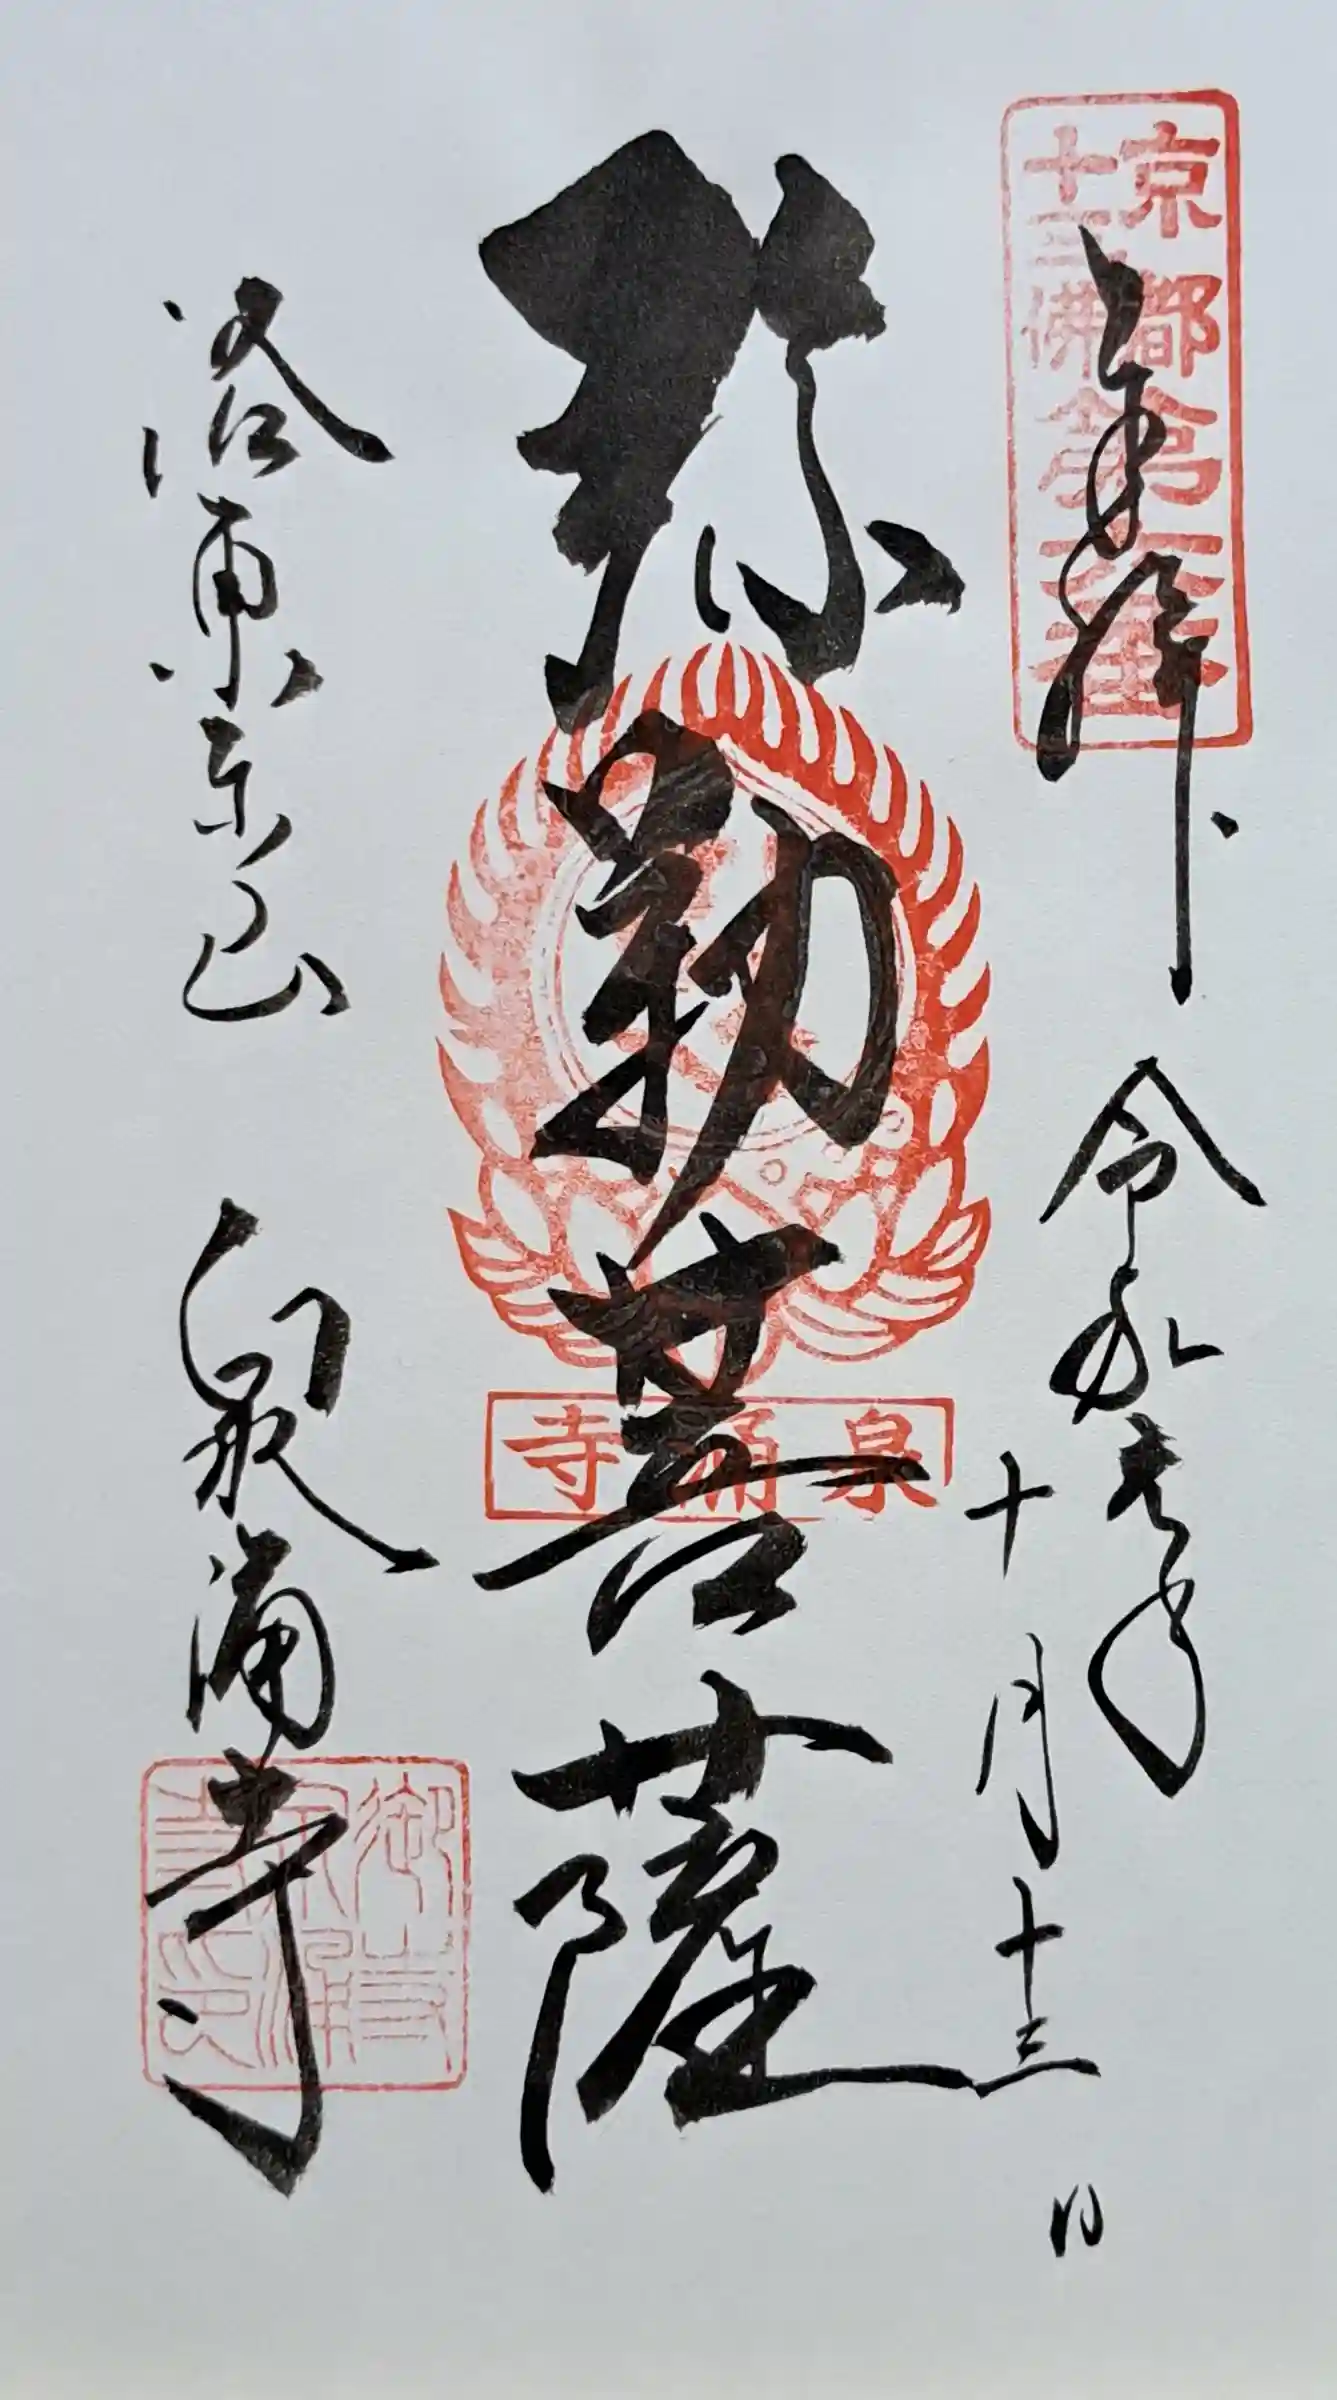 京都
十三佛
第六番
奉拝 令和元年
十月十三日
弥勒菩薩
泉涌寺
洛東東山 泉涌寺
御寺
泉涌
寺印